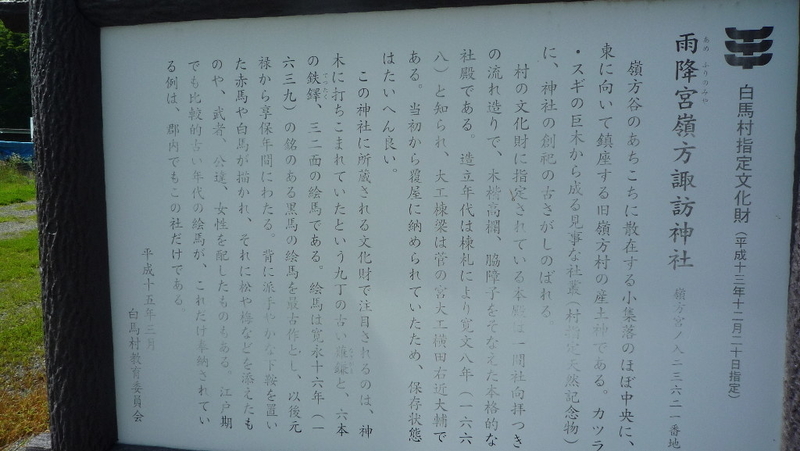 白馬村指定文化財(平成十三年十二月二十日指定)
あめ ふりのみや
雨降宮嶺方諏訪神社
嶺方宮ノ入二三六二一番地
嶺方谷のあちこちに散在する小集落のほぼ中央に、
東に向いて鎮座する旧嶺方村の産土神である。カツラ
・スギの巨木から成る見事な社叢(村指定天然記念物)
に、神社の創祀の古さがしのばれる。
村の文化財に指定されている本殿は一間社向拝つき
の流れ造りで、木階高欄、脇障子をそなえた本格的な
社殿である。造立年代は棟札により寛文八年(一六六
八)と知られ、大工棟梁は菅の宮大工横田右近大輔で
ある。当初から覆屋に納められていたため、保存状態
はたいへん良い。
この神社に所蔵される文化財で注目されるのは、神
木に打ちこまれていたという九丁の古い薙鎌と、六本
の鉄鐸、三二面の絵馬である。絵馬は寛永十六年(一
六三九)の銘のある黒馬の絵馬を最古作とし、以後元
禄から享保年間にわたる。背に派手やかな下鞍を置い
た赤馬や白馬が描かれ、それに松や梅などを添えたも
のや、武者、公達、女性を配したものもある。江戸期
でも比較的古い年代の絵馬が、これだけ奉納されてい
る例は、郡内でもこの社だけである。
平成十五年三月
白馬村教育委員会